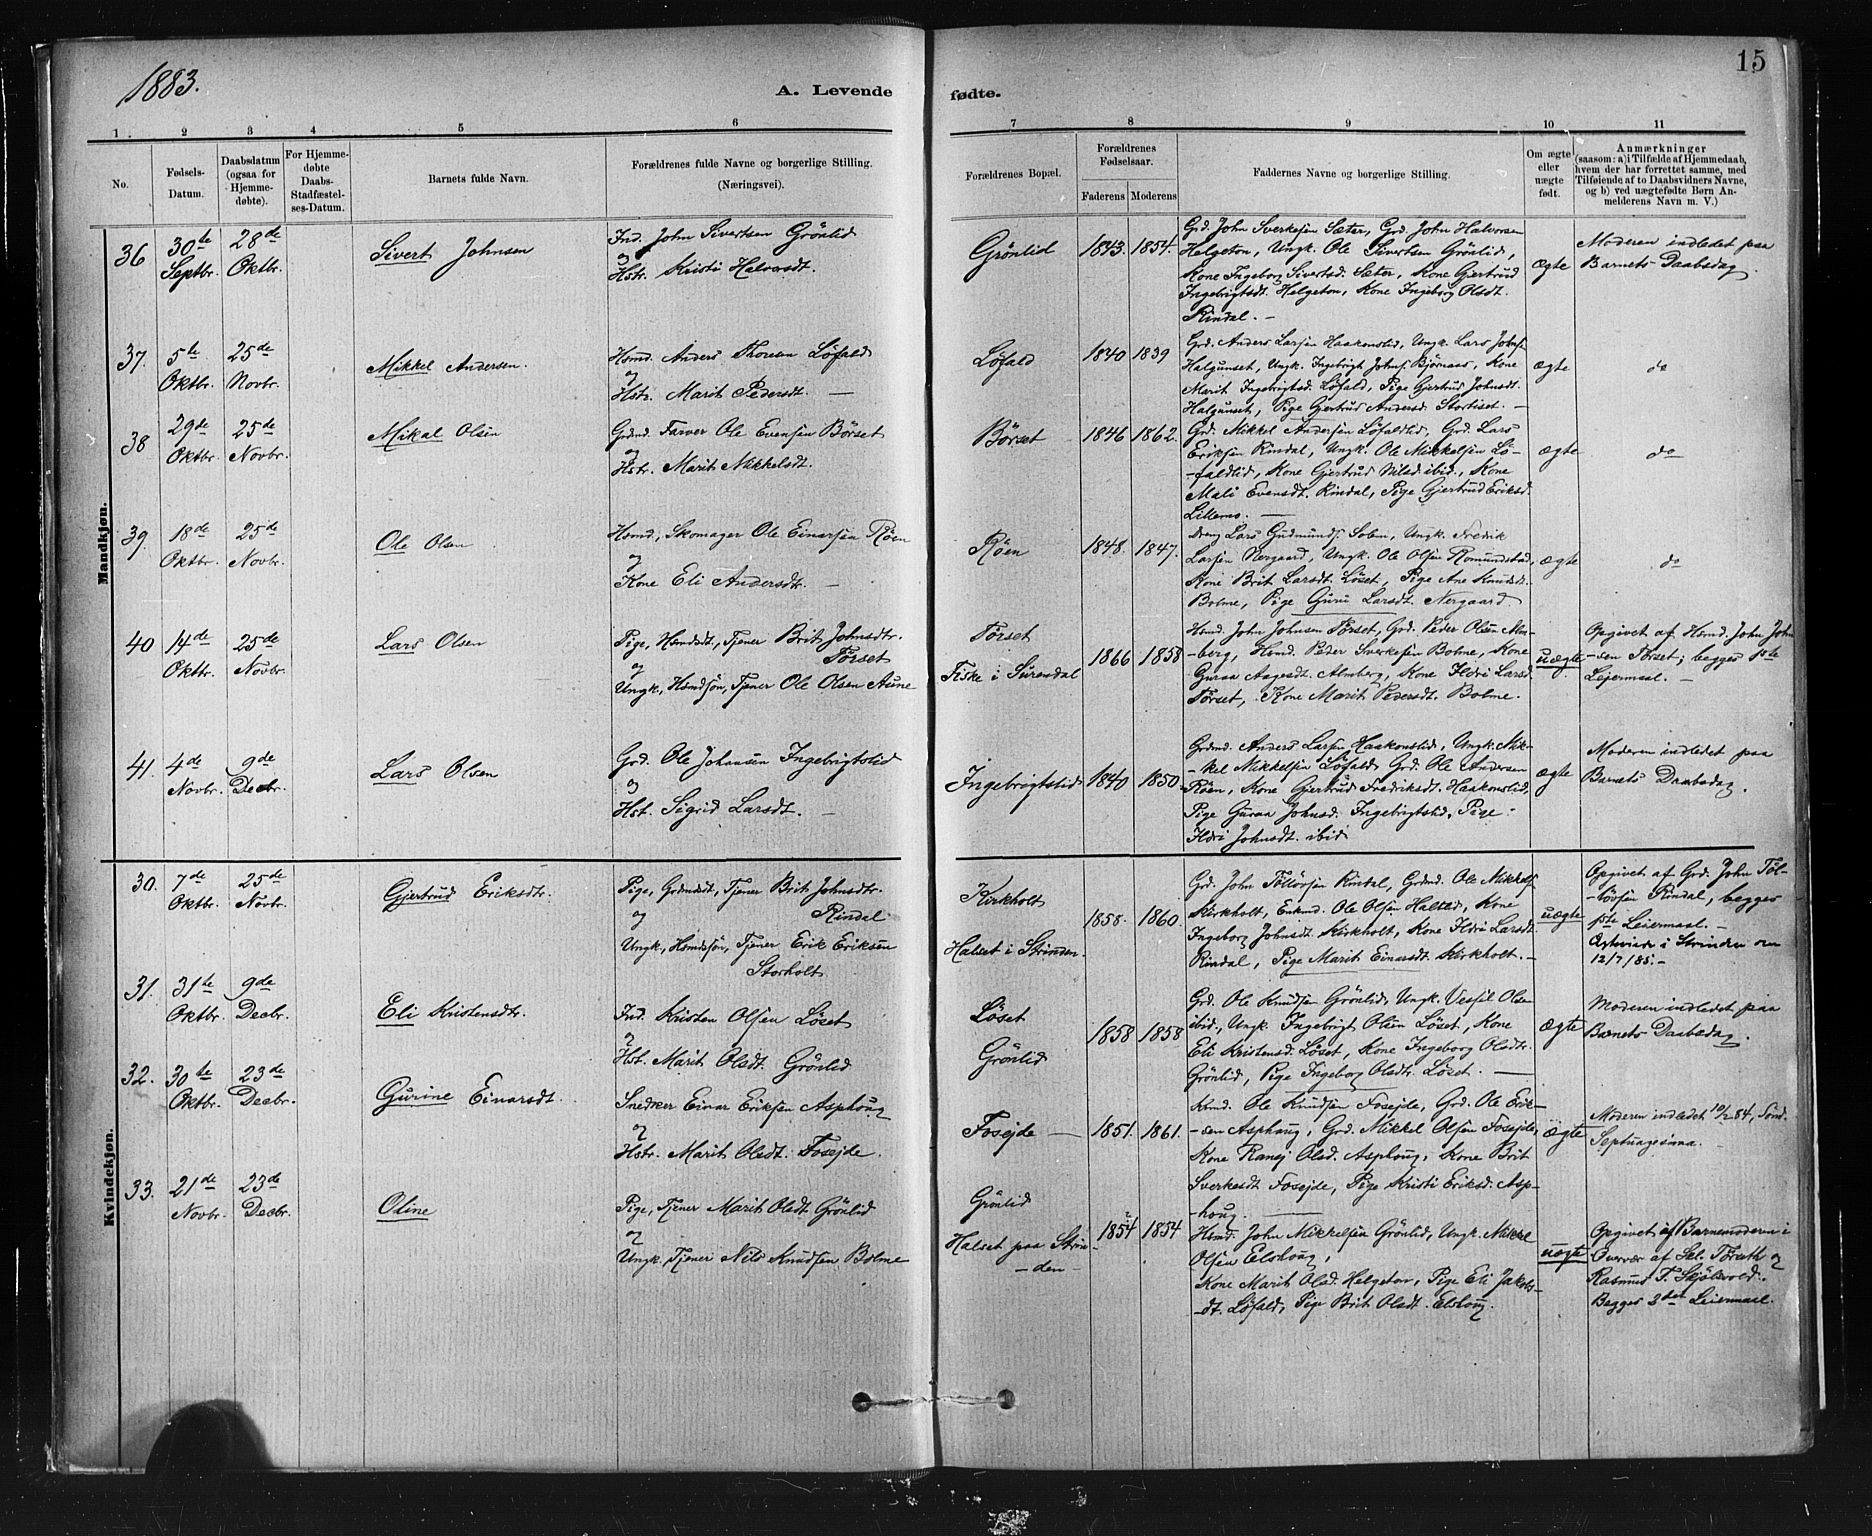 1883.
A. Levende
fødte.
15
1
2
3
4
5
6
7
8
9
10
11
No.
Fødsels-
Datum.
Daabsdatum
(ogsaa for
Hjemme-
døbte).
For Hjemme-
døbte
Daabs-
Stadfæstel-
ses-Datum.
Barnets fulde Navn.
Forældrenes fulde Navne og borgerlige Stilling.
(Næringsvei).
Forældrenes Bopæl.
Forældrenes
Fødselsaar.
Faderens
Moderens
Faddernes Navne og borgerlige Stilling.
Om ægte
eller
uægte
født.
Anmærkninger
(saasom: a) i Tilfælde af Hjemmedaab,
hvem der har forrettet samme, med
Tilføiende af to Daabsvidners Navne,
og b) ved uægtefødte Børn An-
melderens Navn m. V.)
Mandkjøn.
36
30te
Septbr.
28de
Oktbr.
Sivert Johnsen
Ind. John Sivertsen Grönlid
og
Hstr. Kristi Halvorsdt.
Grönlid
1843.
1854.
Grd. John Sverkesen Sæter, Grd. John Halvorsen
Helgeton, Ungk. Ole Sivertsen Grönlid,
Kone Ingeborg Sivertsd. Sæter, Kone Gjertrud
Ingebrigtsdt. Helgeton, Kone Ingeborg Olsdt.
Rindal. —
ægte
Moderen indledet paa
Barnets Daabsdag
37.
5te
Oktbr.
25de
Novbr.
Mikkel Andersen.
Hsmd. Anders Löfald
og
Hstr. Marit Pedersdt. —
Löfald
1840
1839
Grd. Anders Larsen Haakonslid, Ungk. Lars Johns.
Halgunset, Ungk. Ingebrigt Johns. Bjørnaas, Kone
Marit Ingebrigtsd. Löfald, Pige Gjertrud Johnsdt.
Halgunset, Pige Gjertrud Andersd. Stortiset. —
ægte
do
38
29de
Oktbr.
25de
Novbr.
Mikal Olsen
Grdmd. Farver Ole Evensen Börset
og
Hstr. Marit Mikkelsdt.
Börset
1846
1862.
Grd. Mikkel Andersen Löfaldlid, Grd. Lars
Eriksen Rindal, Ungk. Ole Mikkelsen Lö-
-faldlid, Kone Gjertrud Nilsd ibid., Kone
Mali Evensdt. Rindal, Pige Gjertrud Eriksd.
Lillemo. —
ægte
do
39.
18de
Oktbr.
25de
Novbr.
Ole Olsen
Hsmd, Skomager Ole Einarsen Röen
og
Kone Eli Andersdtr. —
Röen
1848.
1847.
Dreng Lars Gudmunds. Solem, Ungk. Fredrik
Larsen Nergaard, Ungk. Ole Olsen Romundstad,
Kone Brit Larsdt. Löset, Pige Ane Knudsdt.
Bolme, Pige Guri Larsdt. Nergaard
ægte
do
40
14de
Oktbr.
25de
Novbr.
Lars Olsen
Pige, Hsmdsdt., Tjener Brit Johnsdtr.
Torset
og
Ungk., Hsmdsøn, Tjener Ole Olsen Aune
Törset
Fiske i Surendal
1866
1858
Hsmd. John Johnsen Törset, Grd. Peder Olsen Alm-
-berg, Hsmd. Peder Sverkesen Bolme, Kone
Guraa Aagesdt. Almberg, Kone Ildri Larsd.
Törset, Kone Marit Pedersdt. Bolme. —
uægte
Opgivet af Hsmd. John John-
-sen Törset; begges 1ste
Leiermaal. —
41.
4de
Novbr.
9de
Decbr.
Lars Olsen
Grd. Ole Johansen Ingebrigtslid
og
Hst. Sigrid Larsdt. —
Ingebrigtslid
1840
1850.
Grdmd. Anders Larsen Haakonslid, Ungk. Mik-
-kel Mikkelsen Löfald, Grd. Ole Andersen
Röen, Kone Gjertrud Fredriksdt. Haakonslid,
Pige Guraa Johnsd. Ingebrigtslid, Pige
Ildri Johnsdt. ibid.
ægte
Moderen indledet paa
Barnets Daabsdag.
Kvindekjøn.
30.
7de
Oktbr.
25de
Novbr.
Gjertrud Eriksdtr.
Pige, Grdmdsdt, Tjener Brit Johnsdtr.
Rindal
og
Ungk., Hsmdssön, Tjener Erik Eriksen
Storholt
Kirkholt
Halset i Strinden.
1858.
1860.
Grd. John Töllöfsen Rindal, Grdmd. Ole Mikkels.
Kirkholt, Enkmd. Ole Olsen Haltlid, Kone
Ingeborg Johnsdt. Kirkholt, Kone Ildri Larsdt.
Rindal, Pige Marit Einarsdt. Kirkholt. —
uægte
Opgivet af Grd. John Töl-
-löfsen Rindal, begges
1ste Leiermaal. —
i Strinden
12/7/85. —
31.
31te
Oktbr.
9de
Decbr.
Eli Kristensdtr.
Ind. Kristen Olsen Löset
og
Hst. Marit Olsdt. Grönlid
Löset
Grönlid
1858
1858
Grd. Ole Knudsen Grönlid, Ungk. Olsen
ibid., Ungk. Ingebrigt Olsen Löset, Kone
Eli Kristensd. Löset, Kone Ingeborg Olsdtr.
Grönlid, Pige Ingeborg Olsdtr. Löset. —
ægte
Moderen indledet paa
Barnets Daabsdag.
32.
30te
Oktbr.
23de
Decbr.
Gurine Einarsdt.
Snedker Einar Eriksen Asphoug
og
Hstr. Marit Olsdt. Fosejde.
Fosejde —
1851.
1861.
Hsmd. Ole Knudsen Fosejde, Grd. Ole Erik-
-sen Asphoug, Grd. Mikkel Olsen Fosejde,
Kone Ranej Olsd. Asphoug, Kone Brit
Sverkesdt Fosejde, Pige Kristi Eriksd. Asp-
-houg. —
ægte
Moderen indledet 10/2 84, Sönd.
Septuagesima.
33.
21de
Novbr.
23de
Decbr.
Oline
Pige, Tjener Marit Olsdt. Grönlid
og
Ungk. Tjener Nils Knudsen Bolme
Grönlid
Halset paa Strin-
-den-
1854
1854
Hsmd. John Mikkelsen Grönlid, Ungk. Mikkel
Olsen Elshoug,
Kone Marit Olsd. Helgeton, Pige Eli Jakobs-
-dt. Löfald, Pige Brit Olsdt. Elshoug.
uægte
Opgivet af Barnemoderen i
Overvær af Skl. Törseth og
Rasmus F. Skjölsvold.
Begges 2det Leiermaal.